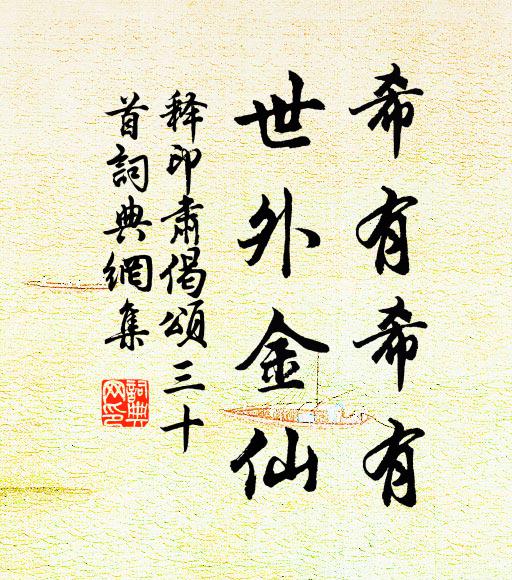 希有希有
世外金仙
释印肃偈颂三十
首詞典網集
詞典网印